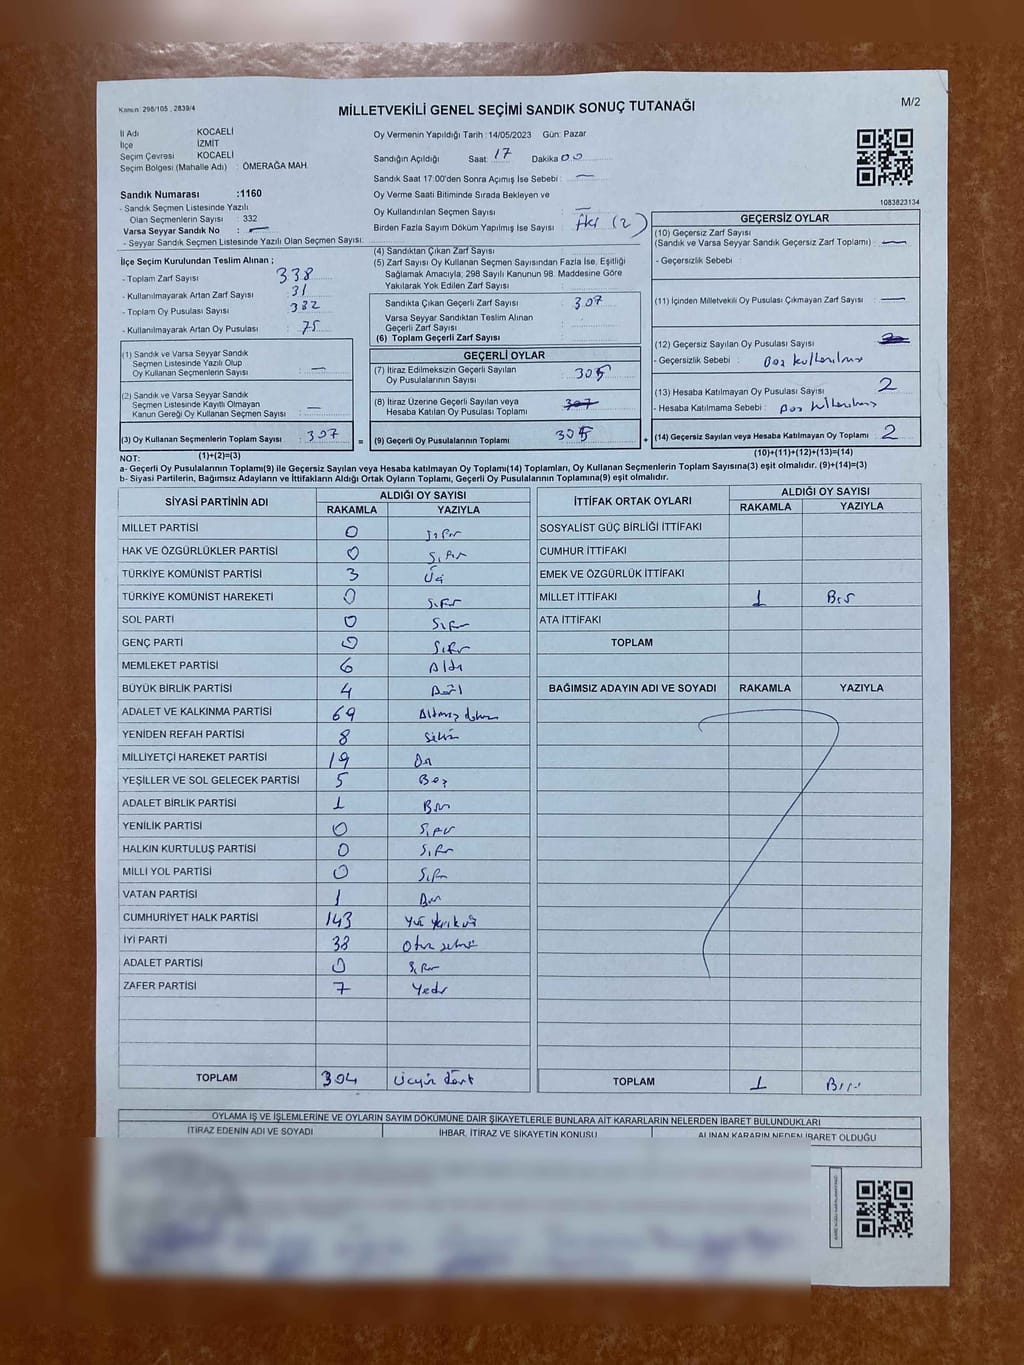 Kanun: 298/105 , 2839/4
MİLLETVEKİLİ GENEL SEÇİMİ SANDIK SONUÇ TUTANAĞI
M/2
İl Adı KOCAELİ
İlçe İZMİT
Seçim Çevresi KOCAELİ
Seçim Bölgesi (Mahalle Adı) : ÖMERAĞA MAH
Oy Vermenin Yapıldığı Tarih : 14/05/2023 Gün: Pazar
Sandığın Açıldığı Saat: 17 Dakika 00
Sandık Saat 17:00'den Sonra Açımış İse Sebebi : —
Oy Verme Saati Bitiminde Sırada Bekleyen ve
Oy Kullandırılan Seçmen Sayısı : —
Birden Fazla Sayım Döküm Yapılmış İse Sayısı : İki (2)
1083823134
Sandık Numarası :1160
- Sandık Seçmen Listesinde Yazılı
Olan Seçmenlerin Sayısı : 332
Varsa Seyyar Sandık No : —
- Seyyar Sandık Seçmen Listesinde Yazılı Olan Seçmen Sayısı:
İlçe Seçim Kurulundan Teslim Alınan ;
- Toplam Zarf Sayısı : 338
- Kullanılmayarak Artan Zarf Sayısı : 31
- Toplam Oy Pusulası Sayısı : 382
- Kullanılmayarak Artan Oy Pusulası : 75
(1) Sandık ve Varsa Seyyar Sandık
Seçmen Listesinde Yazılı Olup
Oy Kullanan Seçmenlerin Sayısı : —
(2) Sandık ve Varsa Seyyar Sandık
Seçmen Listesinde Kayıtlı Olmayan
Kanun Gereği Oy Kullanan Seçmen Sayısı : —
(3) Oy Kullanan Seçmenlerin Toplam Sayısı : 307 =
(1)+(2)=(3)
(4) Sandıktan Çıkan Zarf Sayısı :
(5) Zarf Sayısı Oy Kullanan Seçmen Sayısından Fazla İse, Eşitliği
Sağlamak Amacıyla, 298 Sayılı Kanunun 98. Maddesine Göre
Yakılarak Yok Edilen Zarf Sayısı :
Sandıkta Çıkan Geçerli Zarf Sayısı : 307
Varsa Seyyar Sandıktan Teslim Alınan
Geçerli Zarf Sayısı :
(6) Toplam Geçerli Zarf Sayısı :
GEÇERLİ OYLAR
(7) İtiraz Edilmeksizin Geçerli Sayılan
Oy Pusulalarının Sayısı : 305
(8) İtiraz Üzerine Geçerli Sayılan veya
Hesaba Katılan Oy Pusulası Toplamı : 307
(9) Geçerli Oy Pusulalarının Toplamı : 305 +
GEÇERSİZ OYLAR
(10) Geçersiz Zarf Sayısı
(Sandık ve Varsa Seyyar Sandık Geçersiz Zarf Toplamı) : —
- Geçersizlik Sebebi :
(11) İçinden Milletvekili Oy Pusulası Çıkmayan Zarf Sayısı : —
(12) Geçersiz Sayılan Oy Pusulası Sayısı :
- Geçersizlik Sebebi : Boş kullanılmış
(13) Hesaba Katılmayan Oy Pusulası Sayısı : 2
- Hesaba Katılmama Sebebi : Boş kullanılmış
(14) Geçersiz Sayılan veya Hesaba Katılmayan Oy Toplamı : 2
(10)+(11)+(12)+(13)=(14)
NOT:
a- Geçerli Oy Pusulalarının Toplamı(9) ile Geçersiz Sayılan veya Hesaba katılmayan Oy Toplamı(14) Toplamları, Oy Kullanan Seçmenlerin Toplam Sayısına(3) eşit olmalıdır. (9)+(14)=(3)
b- Siyasi Partilerin, Bağımsız Adayların ve İttifakların Aldığı Ortak Oyların Toplamı, Geçerli Oy Pusulalarının Toplamına(9) eşit olmalıdır.
SİYASİ PARTİNİN ADI ALDIĞI OY SAYISI
RAKAMLA YAZIYLA
MİLLET PARTİSİ 0 Sıfır
HAK VE ÖZGÜRLÜKLER PARTİSİ 0 Sıfır
TÜRKİYE KOMÜNİST PARTİSİ 3 Üç
TÜRKİYE KOMÜNİST HAREKETİ 0 Sıfır
SOL PARTİ 0 Sıfır
GENÇ PARTİ 0 Sıfır
MEMLEKET PARTİSİ 6 Altı
BÜYÜK BİRLİK PARTİSİ 4 Dört
ADALET VE KALKINMA PARTİSİ 69 Altmış dokuz
YENİDEN REFAH PARTİSİ 8 Sekiz
MİLLİYETÇİ HAREKET PARTİSİ 19 On
YEŞİLLER VE SOL GELECEK PARTİSİ 5 Beş
ADALET BİRLİK PARTİSİ 1 Bir
YENİLİK PARTİSİ 0 Sıfır
HALKIN KURTULUŞ PARTİSİ 0 Sıfır
MİLLİ YOL PARTİSİ 0 Sıfır
VATAN PARTİSİ 1 Bir
CUMHURİYET HALK PARTİSİ 143 Yüz kırk üç
İYİ PARTİ 38 Otuz sekiz
ADALET PARTİSİ 0 Sıfır
ZAFER PARTİSİ 7 Yedi
TOPLAM 304 Üçyüz dört
İTTİFAK ORTAK OYLARI ALDIĞI OY SAYISI
RAKAMLA YAZIYLA
SOSYALİST GÜÇ BİRLİĞİ İTTİFAKI
CUMHUR İTTİFAKI
EMEK VE ÖZGÜRLÜK İTTİFAKI
MİLLET İTTİFAKI 1 Bir
ATA İTTİFAKI
TOPLAM
BAĞIMSIZ ADAYIN ADI VE SOYADI RAKAMLA YAZIYLA
TOPLAM 1 Bir
OYLAMA İŞ VE İŞLEMLERİNE VE OYLARIN SAYIM DÖKÜMÜNE DAİR ŞİKAYETLERLE BUNLARA AİT KARARLARIN NELERDEN İBARET BULUNDUKLARI
İTİRAZ EDENİN ADI VE SOYADI İHBAR, İTİRAZ VE ŞİKAYETİN KONUSU ALINAN KARARIN NEDEN İBARET OLDUĞU